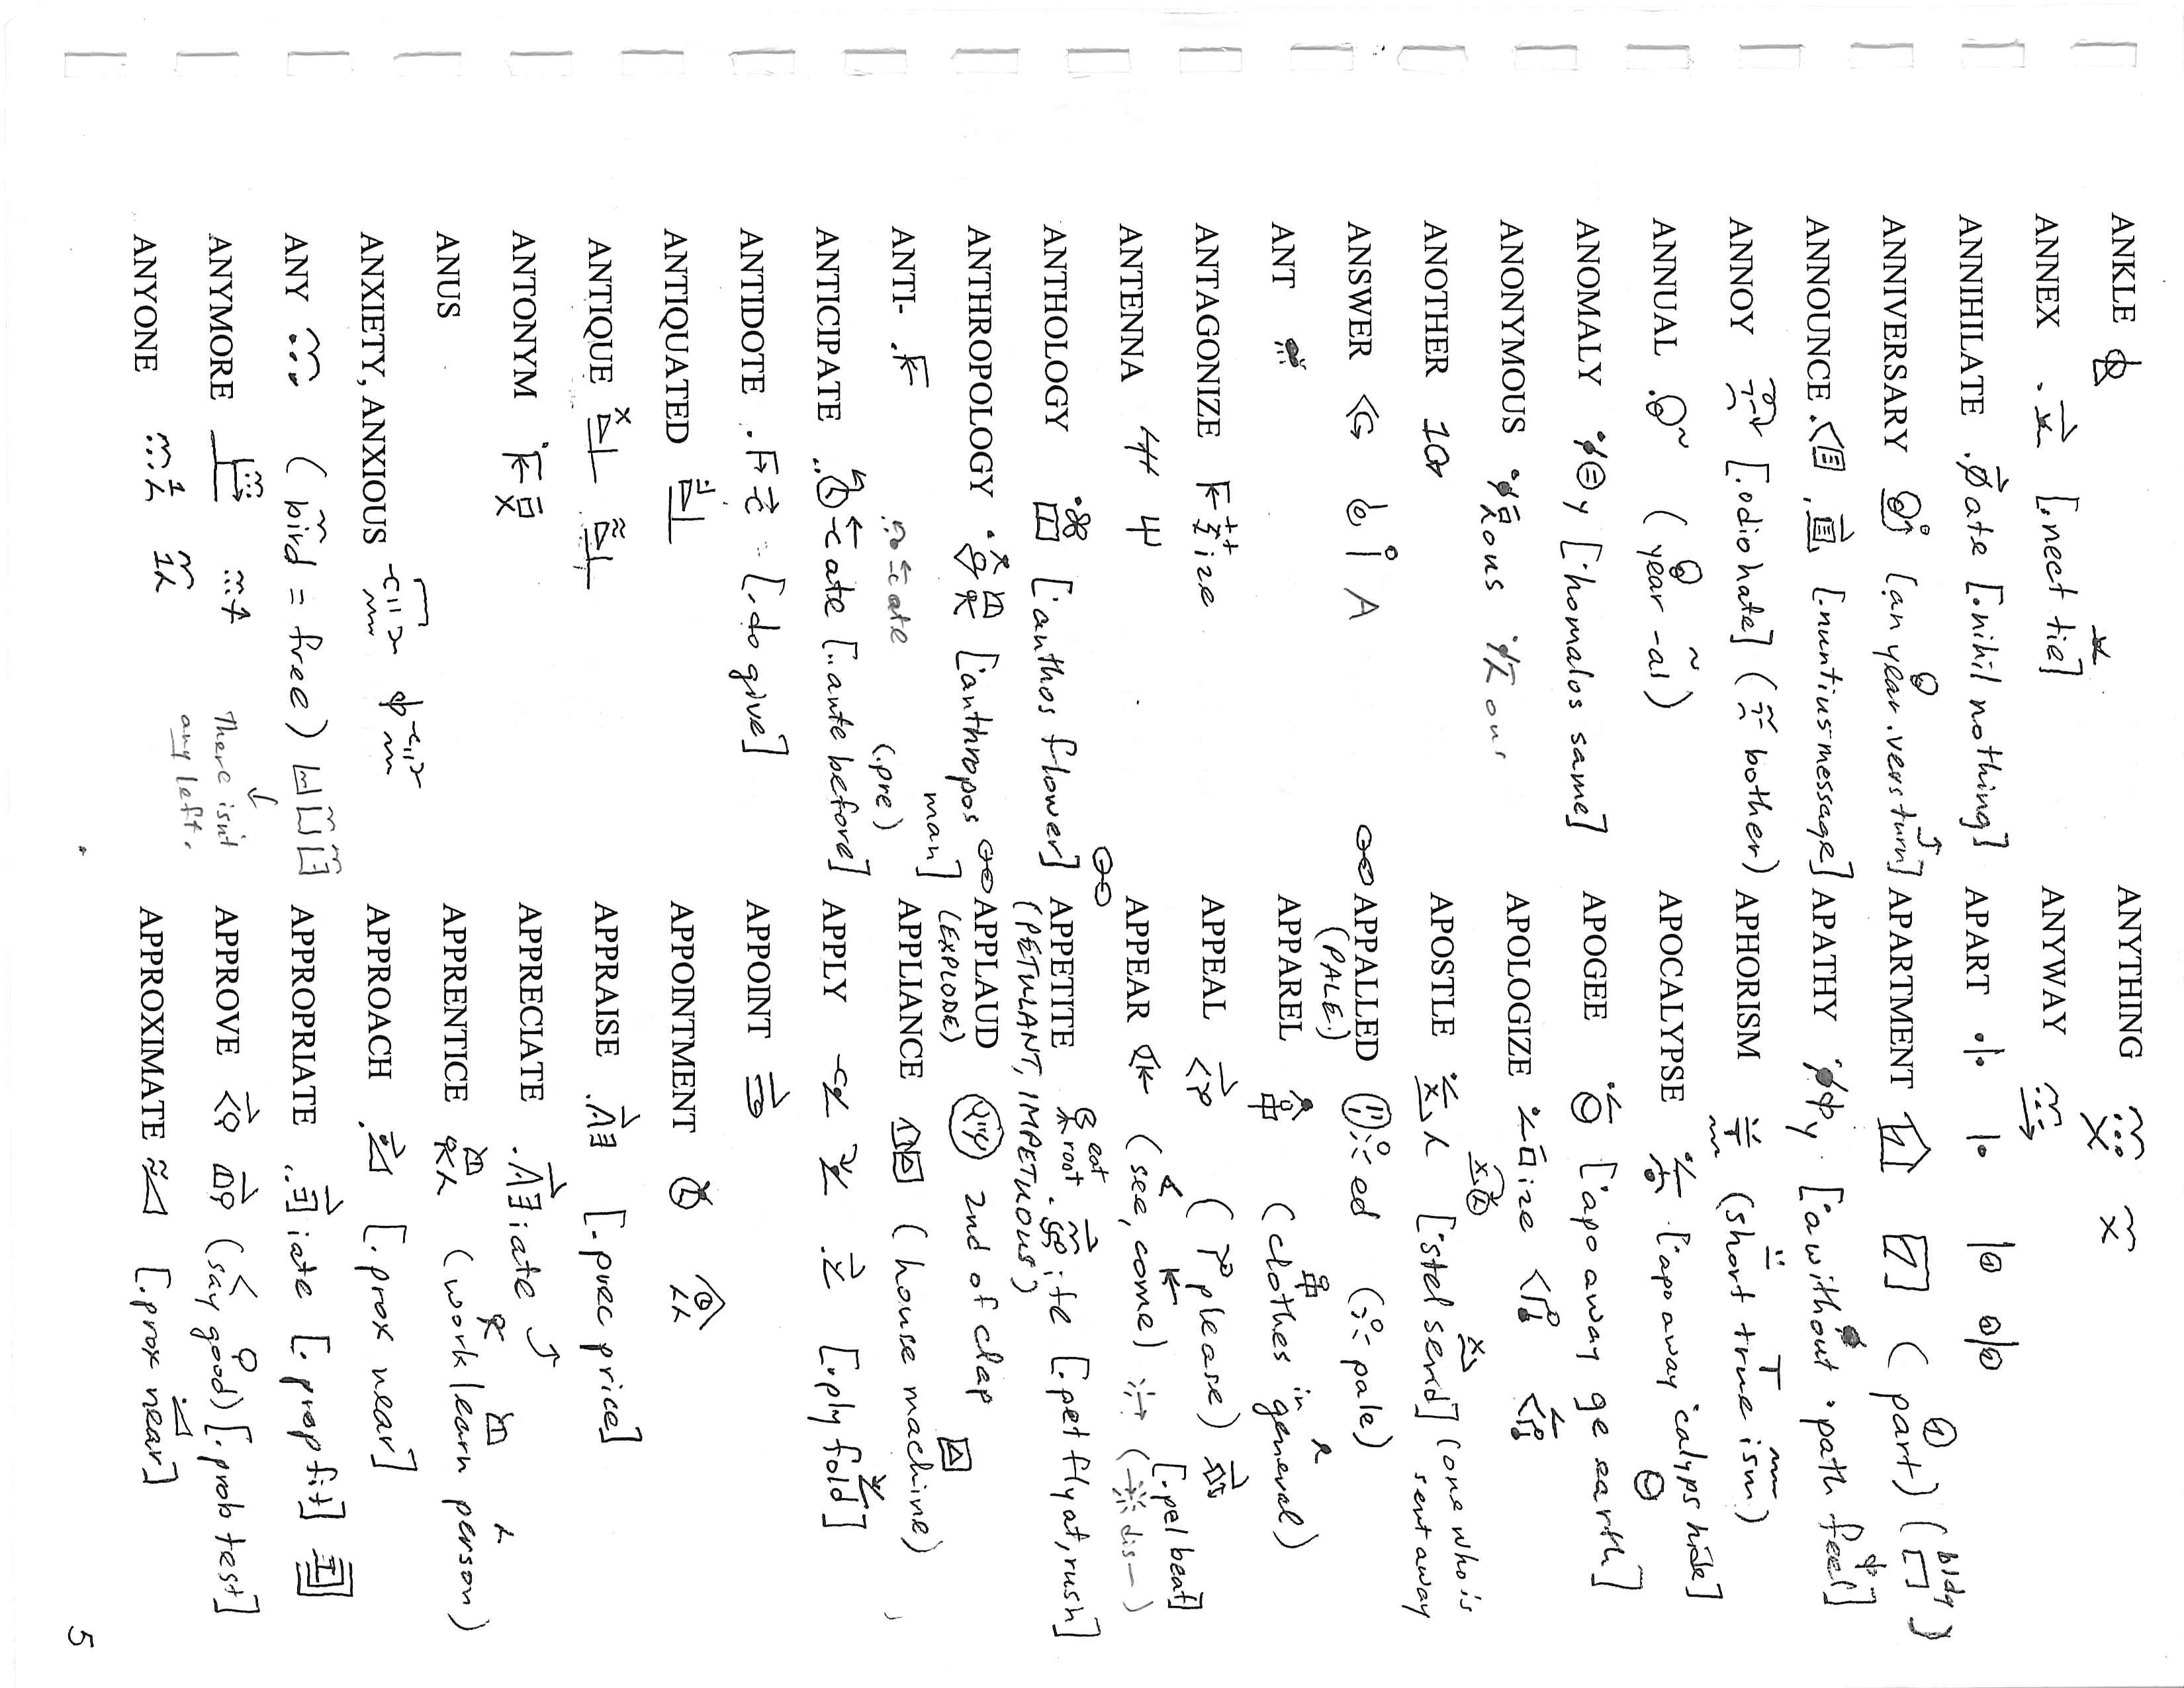 ANKLE
ANNEX [.nect tie]
ANNIHILATE ate [.nihil nothing]
ANNIVERSARY [an year .vers turn]
ANNOUNCE [.nuntius message]
ANNOY [.odio hate] ( bother)
ANNUAL (year -al)
ANOMALY y ['homalos same]
ANONYMOUS ous ous
ANOTHER
ANSWER A
ANT
ANTAGONIZE ize
ANTENNA
ANTHOLOGY ['anthos flower]
ANTHROPOLOGY ['anthropos man]
ANTI- ate (.pre)
ANTICIPATE cate [..ante before]
ANTIDOTE [.do give]
ANTIQUATED
ANTIQUE
ANTONYM
ANUS
ANXIETY, ANXIOUS
ANY (bird = free)
ANYMORE There isn't any left.
ANYONE
ANYTHING
ANYWAY
APART
APARTMENT (part) (bldg)
APATHY y ['a without 'path feel]
APHORISM (short true ism)
APOCALYPSE ['apo away 'calyps hide]
APOGEE ['apo away ge earth]
APOLOGIZE ize
APOSTLE ['stel send] (one who is sent away
APPALLED ed ( pale)
(PALE)
APPAREL (clothes in general)
APPEAL ( please) [.pel beat]
APPEAR (see, come) ( dis-)
APPETITE eat root ite [.pet fly at, rush]
(PETULANT, IMPETUOUS)
APPLAUD 2nd of clap
(EXPLODE)
APPLIANCE (house machine)
APPLY [.ply fold]
APPOINT
APPOINTMENT
APPRAISE [.prec price]
APPRECIATE iate
APPRENTICE (work learn person)
APPROACH [.prox near]
APPROPRIATE iate [.propr fit]
APPROVE (say good) [.prob test]
APPROXIMATE [.prox near]
5